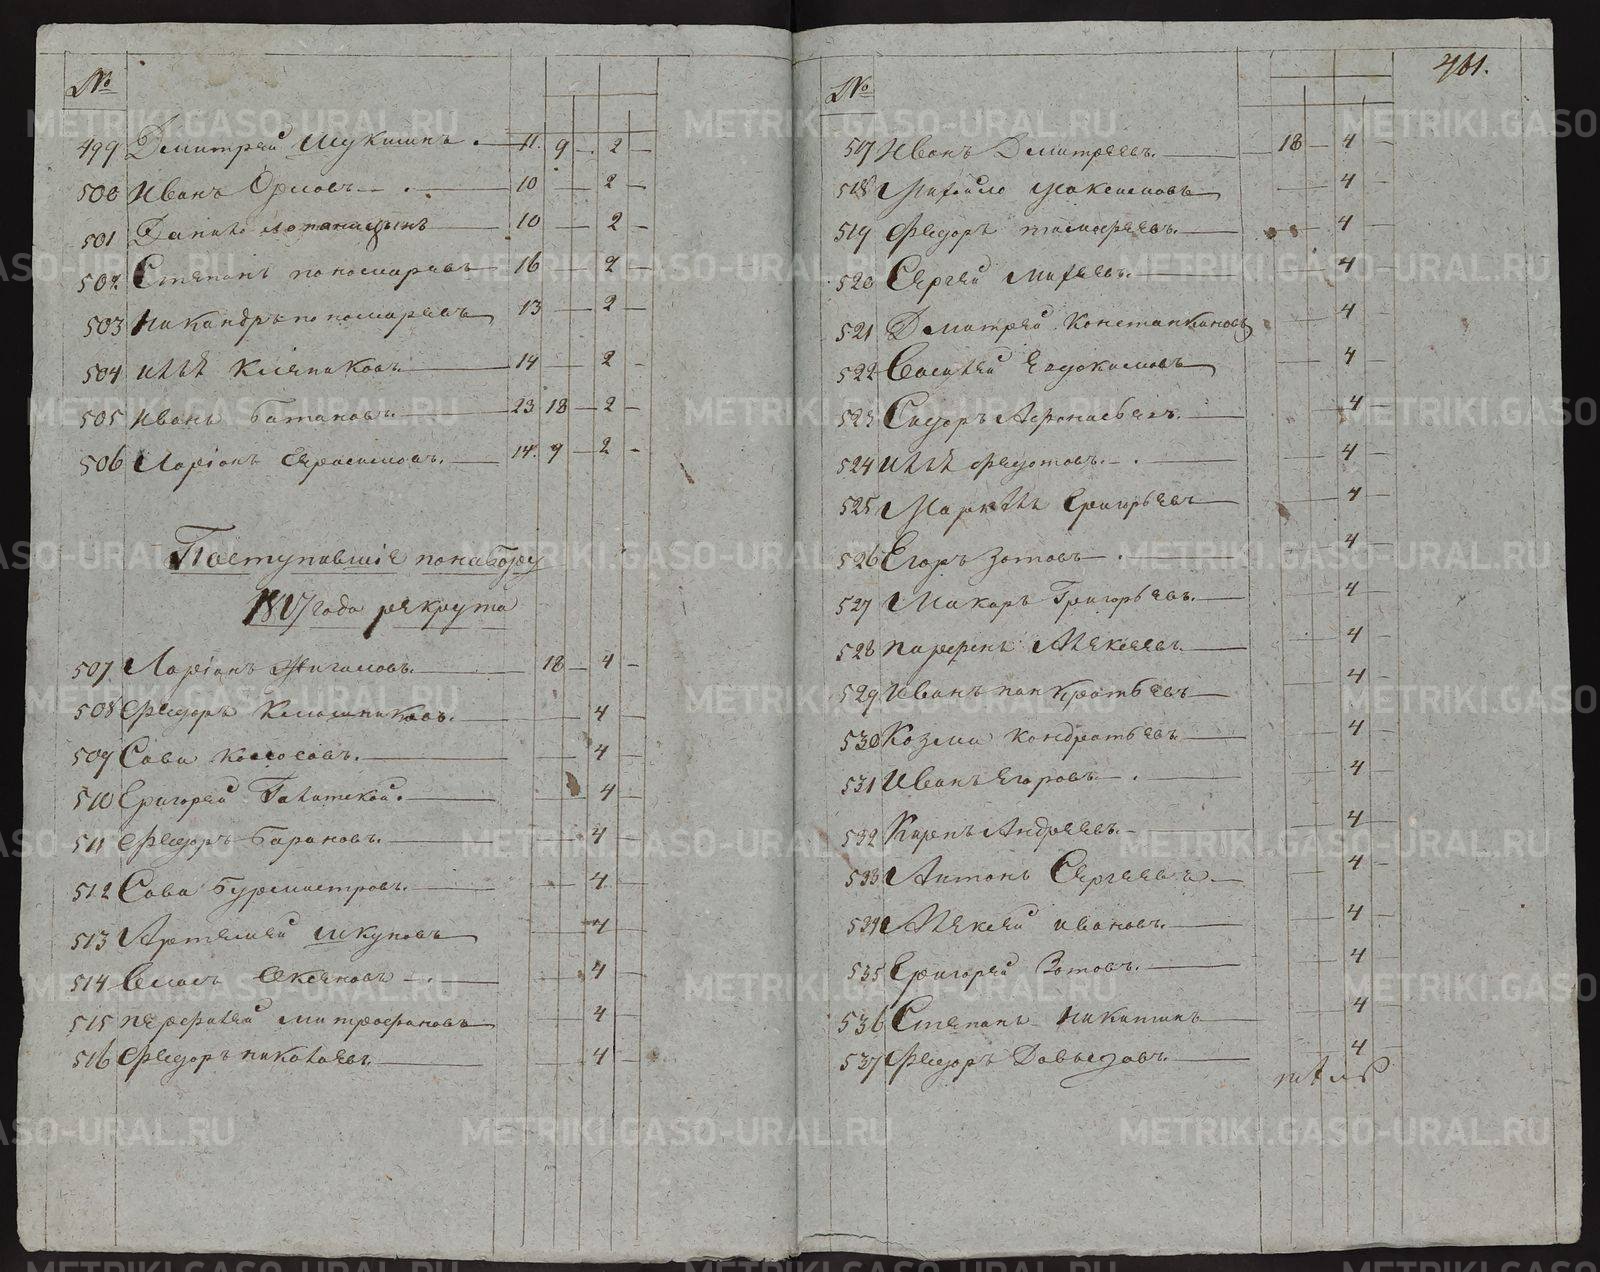 №
499 Дмитрей Шукшинъ. 11. 9 2
500 Иванъ Орловъ 10 2
501 Данило 10 2
502 Степанъ пономаревъ 16 2
503 Никандръ пономаревъ 13 2
504 Илья Клепиковъ 14 2
505 Иванъ Батановъ. 23 18 2
506 Ларіонъ Герасимовъ. 14. 9 2
Поступившіе понабору
1817 года рекрута
507 Ларіонъ Жигаловъ. 18 4
508 Федоръ Калашниковъ. 4
509 Сава Колосовъ. 4
510 Григорей Галитской. 4
511 Федоръ Барановъ. 4
512 Сава Бурмистровъ. 4
513 Артемей Шкуновъ 4
514 Власъ 4
515 перфилей митрофановъ 4
516 Федоръ николаевъ. 4
461.
№
517 Иванъ Дмитреевъ. 18 4
518 Михайло Максимовъ 4
519 Федоръ тимофеевъ. 4
520 Сергей Михеевъ. 4
521 Дмитрей Константиновъ 4
522 Василей Евдокимовъ 4
523 Сидоръ Афонасьевъ. 4
524 Илья Федотовъ. 4
525 Маркелъ Григорьевъ 4
526 Егоръ Зотовъ 4
527 Макаръ Григорьевъ. 4
528 парфенъ Алексеевъ. 4
529 Иванъ панкратьевъ 4
530 Козма кондратьевъ 4
531 Иванъ Егоровъ 4
532 Карпъ Андреевъ. 4
533 Антонъ Сергеевъ. 4
534 Алексей Ивановъ. 4
535 Григорей Зотовъ. 4
536 Степанъ Никитинъ 4
537 Федоръ Давыдовъ. 4
METRIKI.GASO-URAL.RU